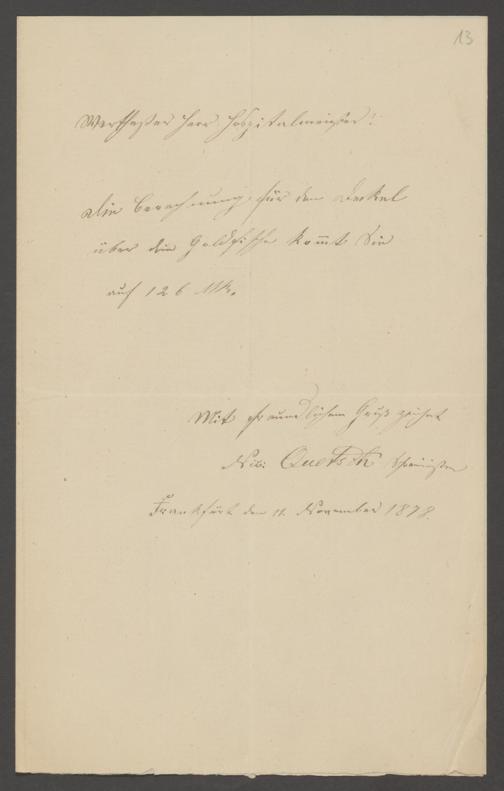 13
Werthester Herr Hospitalmeister!
Die Berechnung für den Deckel
über die Goldfische kommt Sie
auf 126 Mk.
Mit freundlichem Gruß zeichnet
Quetsch
Frankfurt den 11. November 1878.